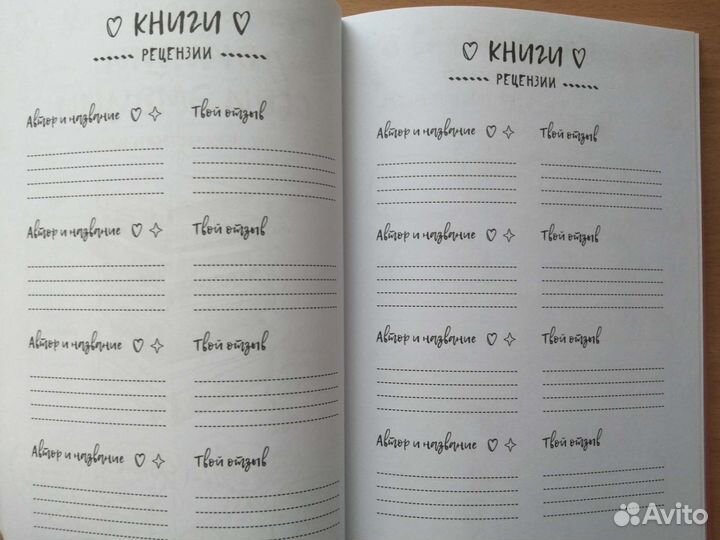 КНИГИ
РЕЦЕНЗИИ
Автор и название Твой отзыв
Автор и название Твой отзыв
Автор и название Твой отзыв
Автор и название Твой отзыв
КНИГИ
РЕЦЕНЗИИ
Автор и название Твой отзыв
Автор и название Твой отзыв
Автор и название Твой отзыв
Автор и название Твой отзыв
Avito